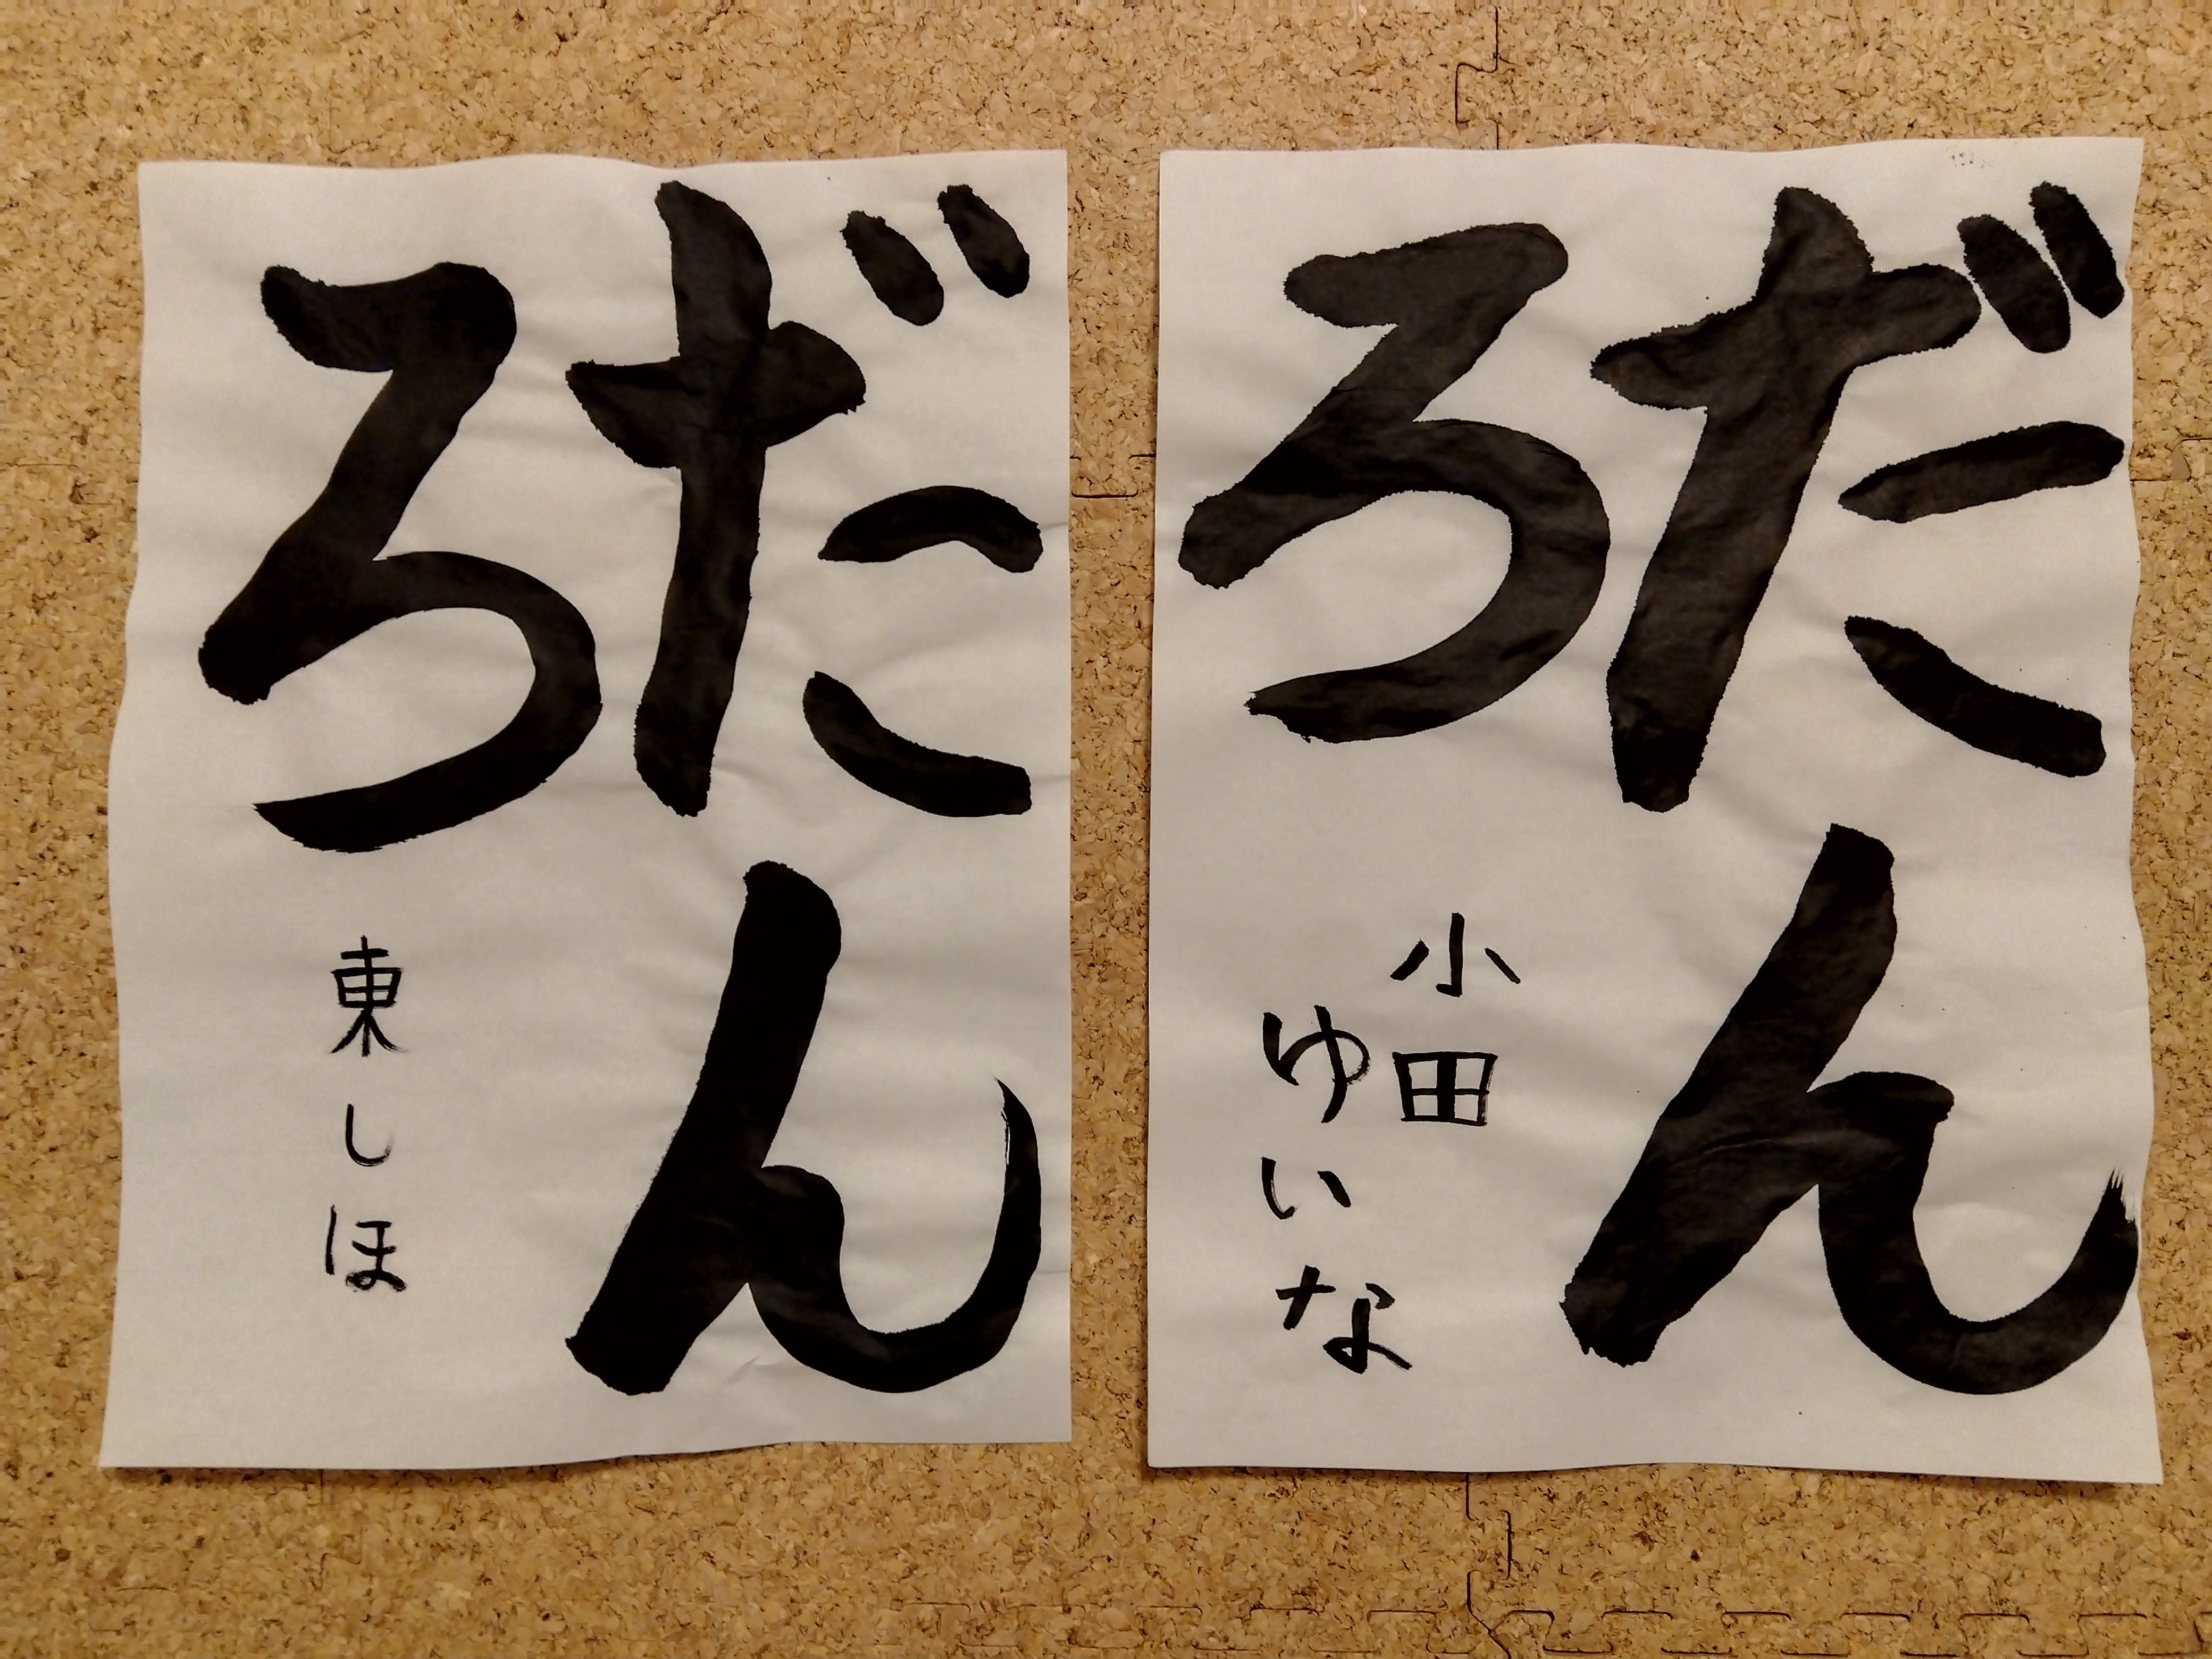 だん
ろ
小田
ゆいな
だん
ろ
東しほ